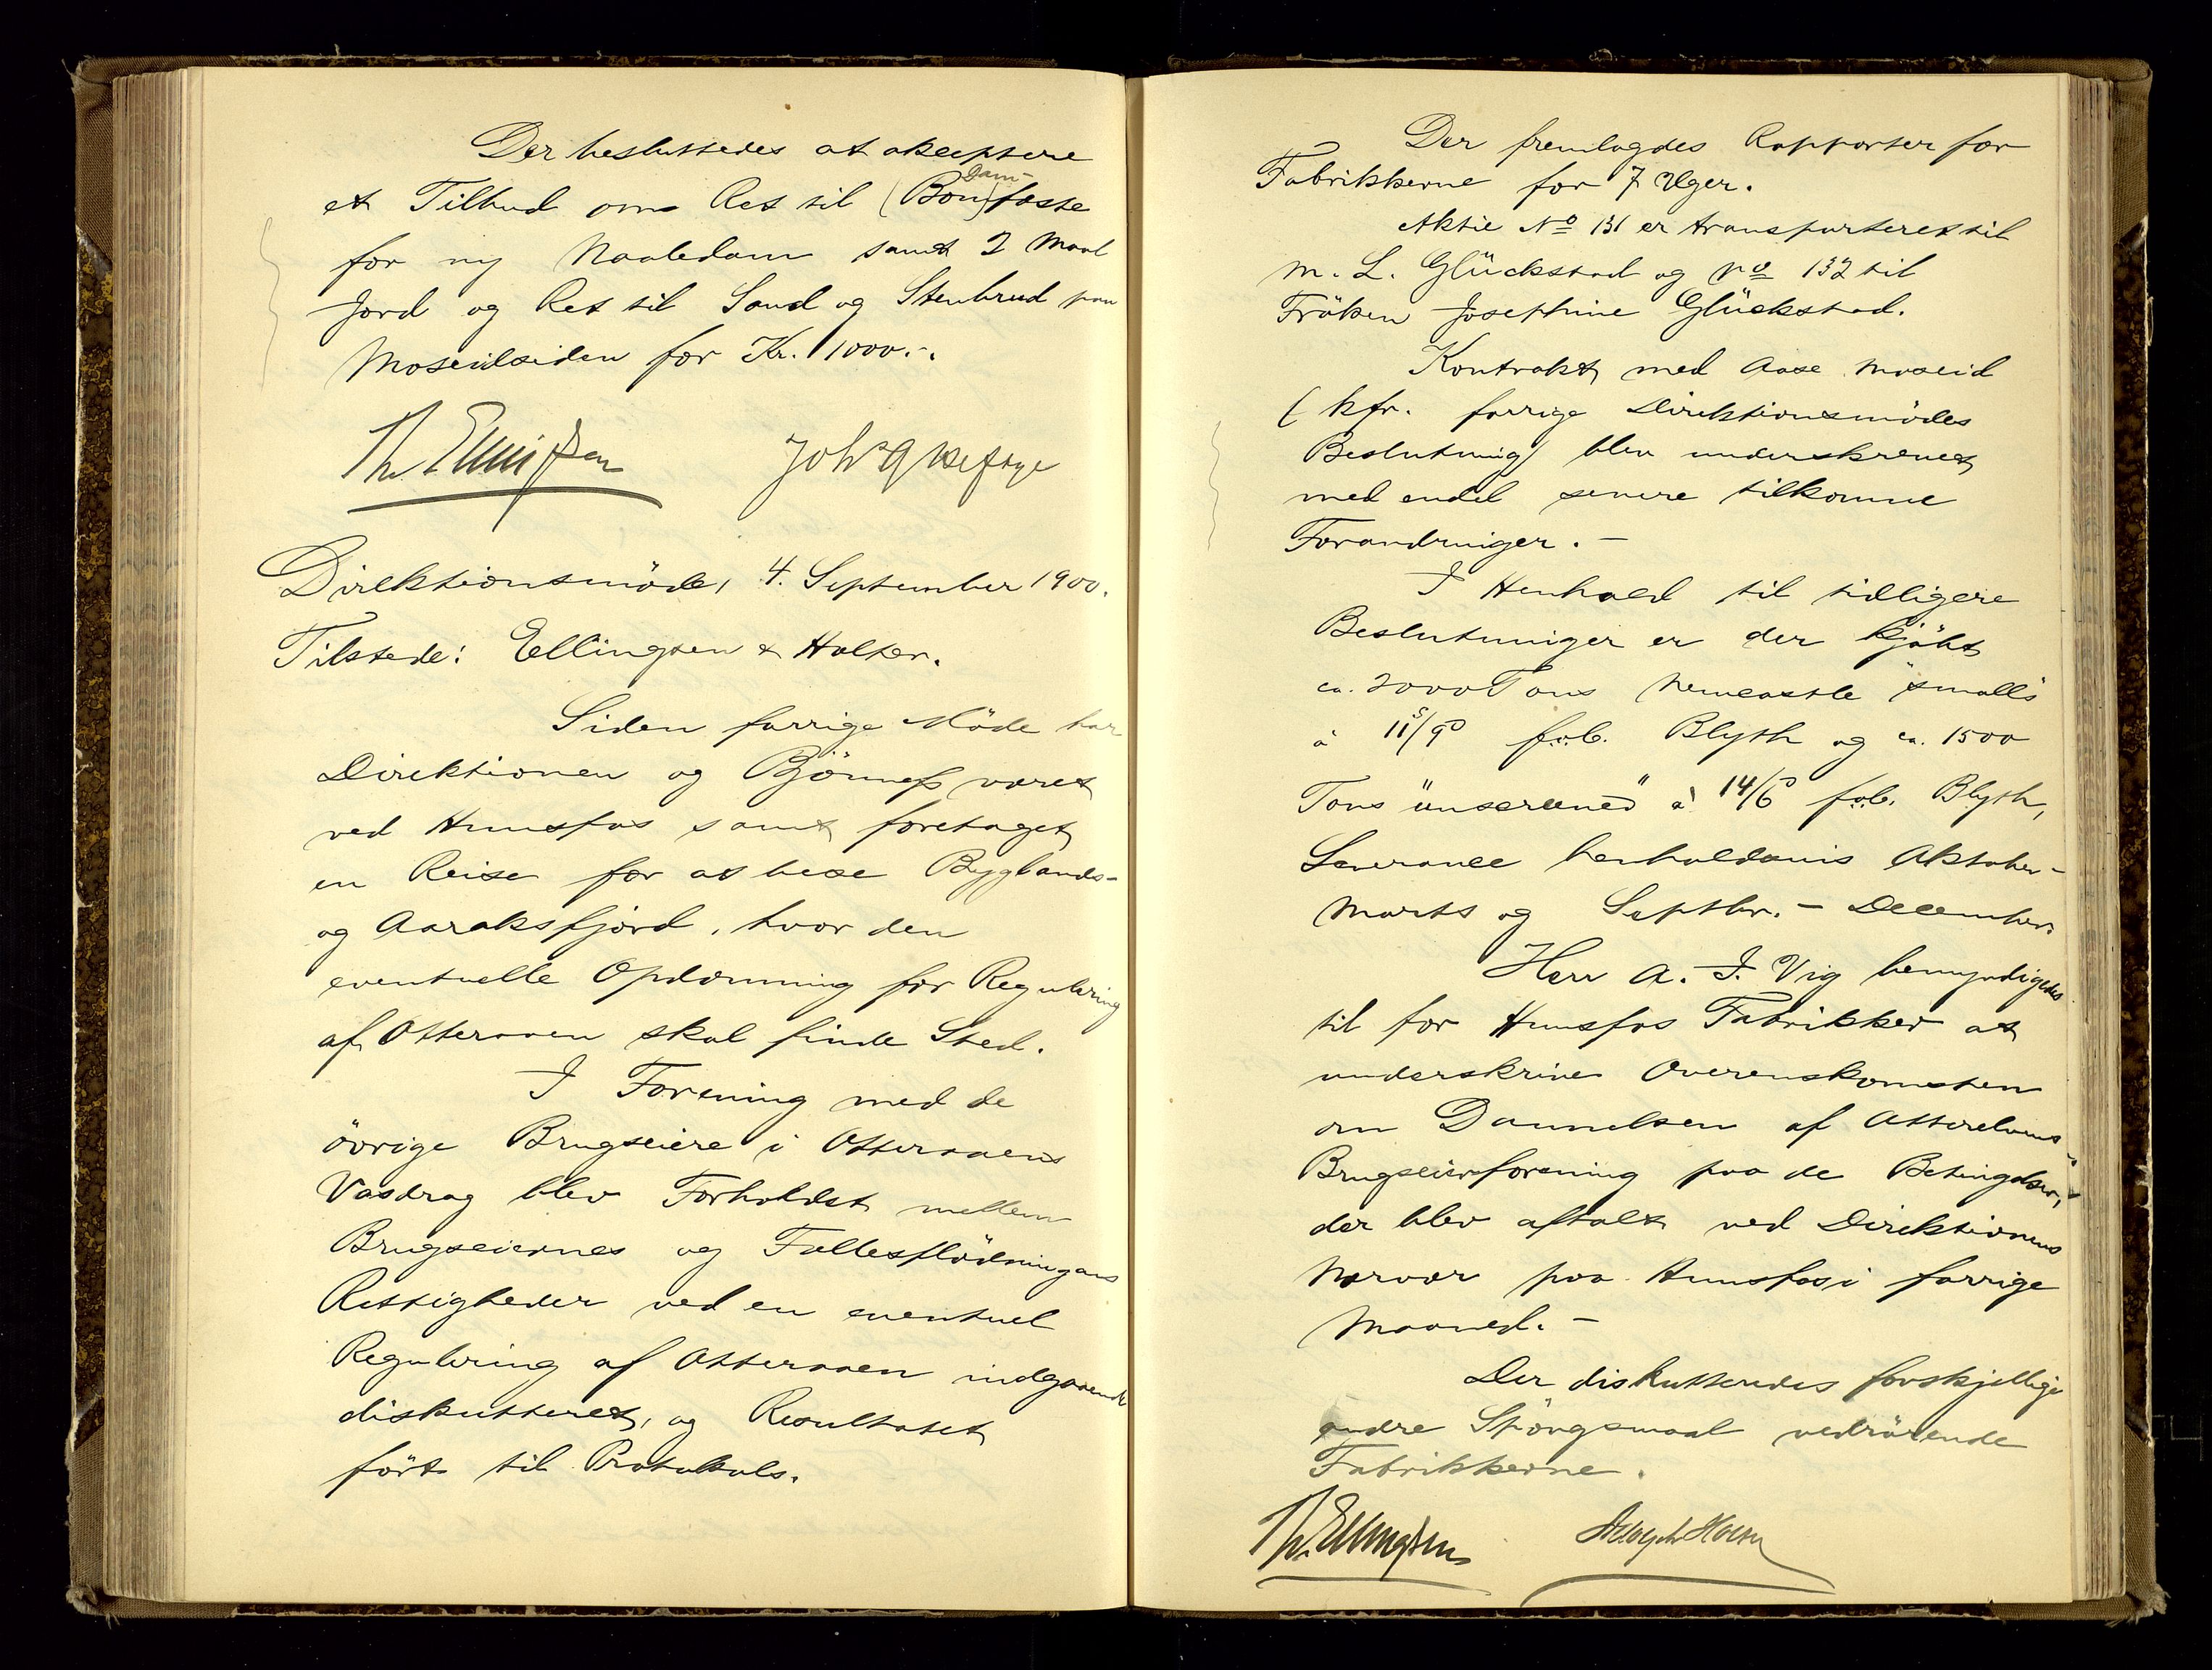 Der besluttedes at akseptere
et Tilbud om Ret til (Bom) Dam-fæste
for ny Naaledam samt 2 Maal
Jord og Ret til Sand og Stenbrud paa
Moseidsiden for Kr. 1000.-.
Th. Ellingsen
Direktionsmöde, 4. September 1900.
Tilstede: Ellingsen & Holter.
Siden forrige Möde har
Direktionen og Bjönness været
ved Hunsfos samt foretaget
en Reise for at bese Byglands-
og Aaraksfjord, hvor den
eventuelle Opdæmning for Regulering
af Otteraaen skal finde Sted.
I Forening med de
övrige Brugseiere i Otteraaens
Vasdrag blev Forholdet mellem
Brugseiernes og Fællesflödningens
Rettigheder ved en eventuel
Regulering af Otteraaen indgaaende
diskutteret, og Resultatet
fört til Protokols.
Der fremlagdes Rapporter for
Fabrikkerne for 7 Uger.
Aktie No 131 er transporteret til
M. L. Glückstad og No 132 til
Fröken Josephine Glückstad.
Kontrakt med Aase Moseid
(kfr. forrige Direktionsmödes
Beslutning) blev underskrevet
med endel senere tilkomne
Forandringer. -
I Henhold til tidligere
Beslutninger er der kjöbt
ca. 2000 Tons Newcastle "smalls"
à 11s/9d f.o.b. Blyth og ca. 1500
Tons "unscreened" à 14/6d f.o.b. Blyth,
Leverance henholdsvis Oktober-
Marts og Septbr. - December.
Herr A. I. Vig bemyndigedes
til for Hunsfos Fabrikker at
underskrive Overenskomsten
om Dannelsen af "Otterelvens
Brugseierforening" paa de Betingelser,
der blev aftalt ved Direktionens
Nærvær paa Hunsfos i forrige
Maaned. -
Der diskutteredes forskjellige
andre Spörgsmaal vedrörende
Fabrikkerne.
Th. Ellingsen Adolph Holter